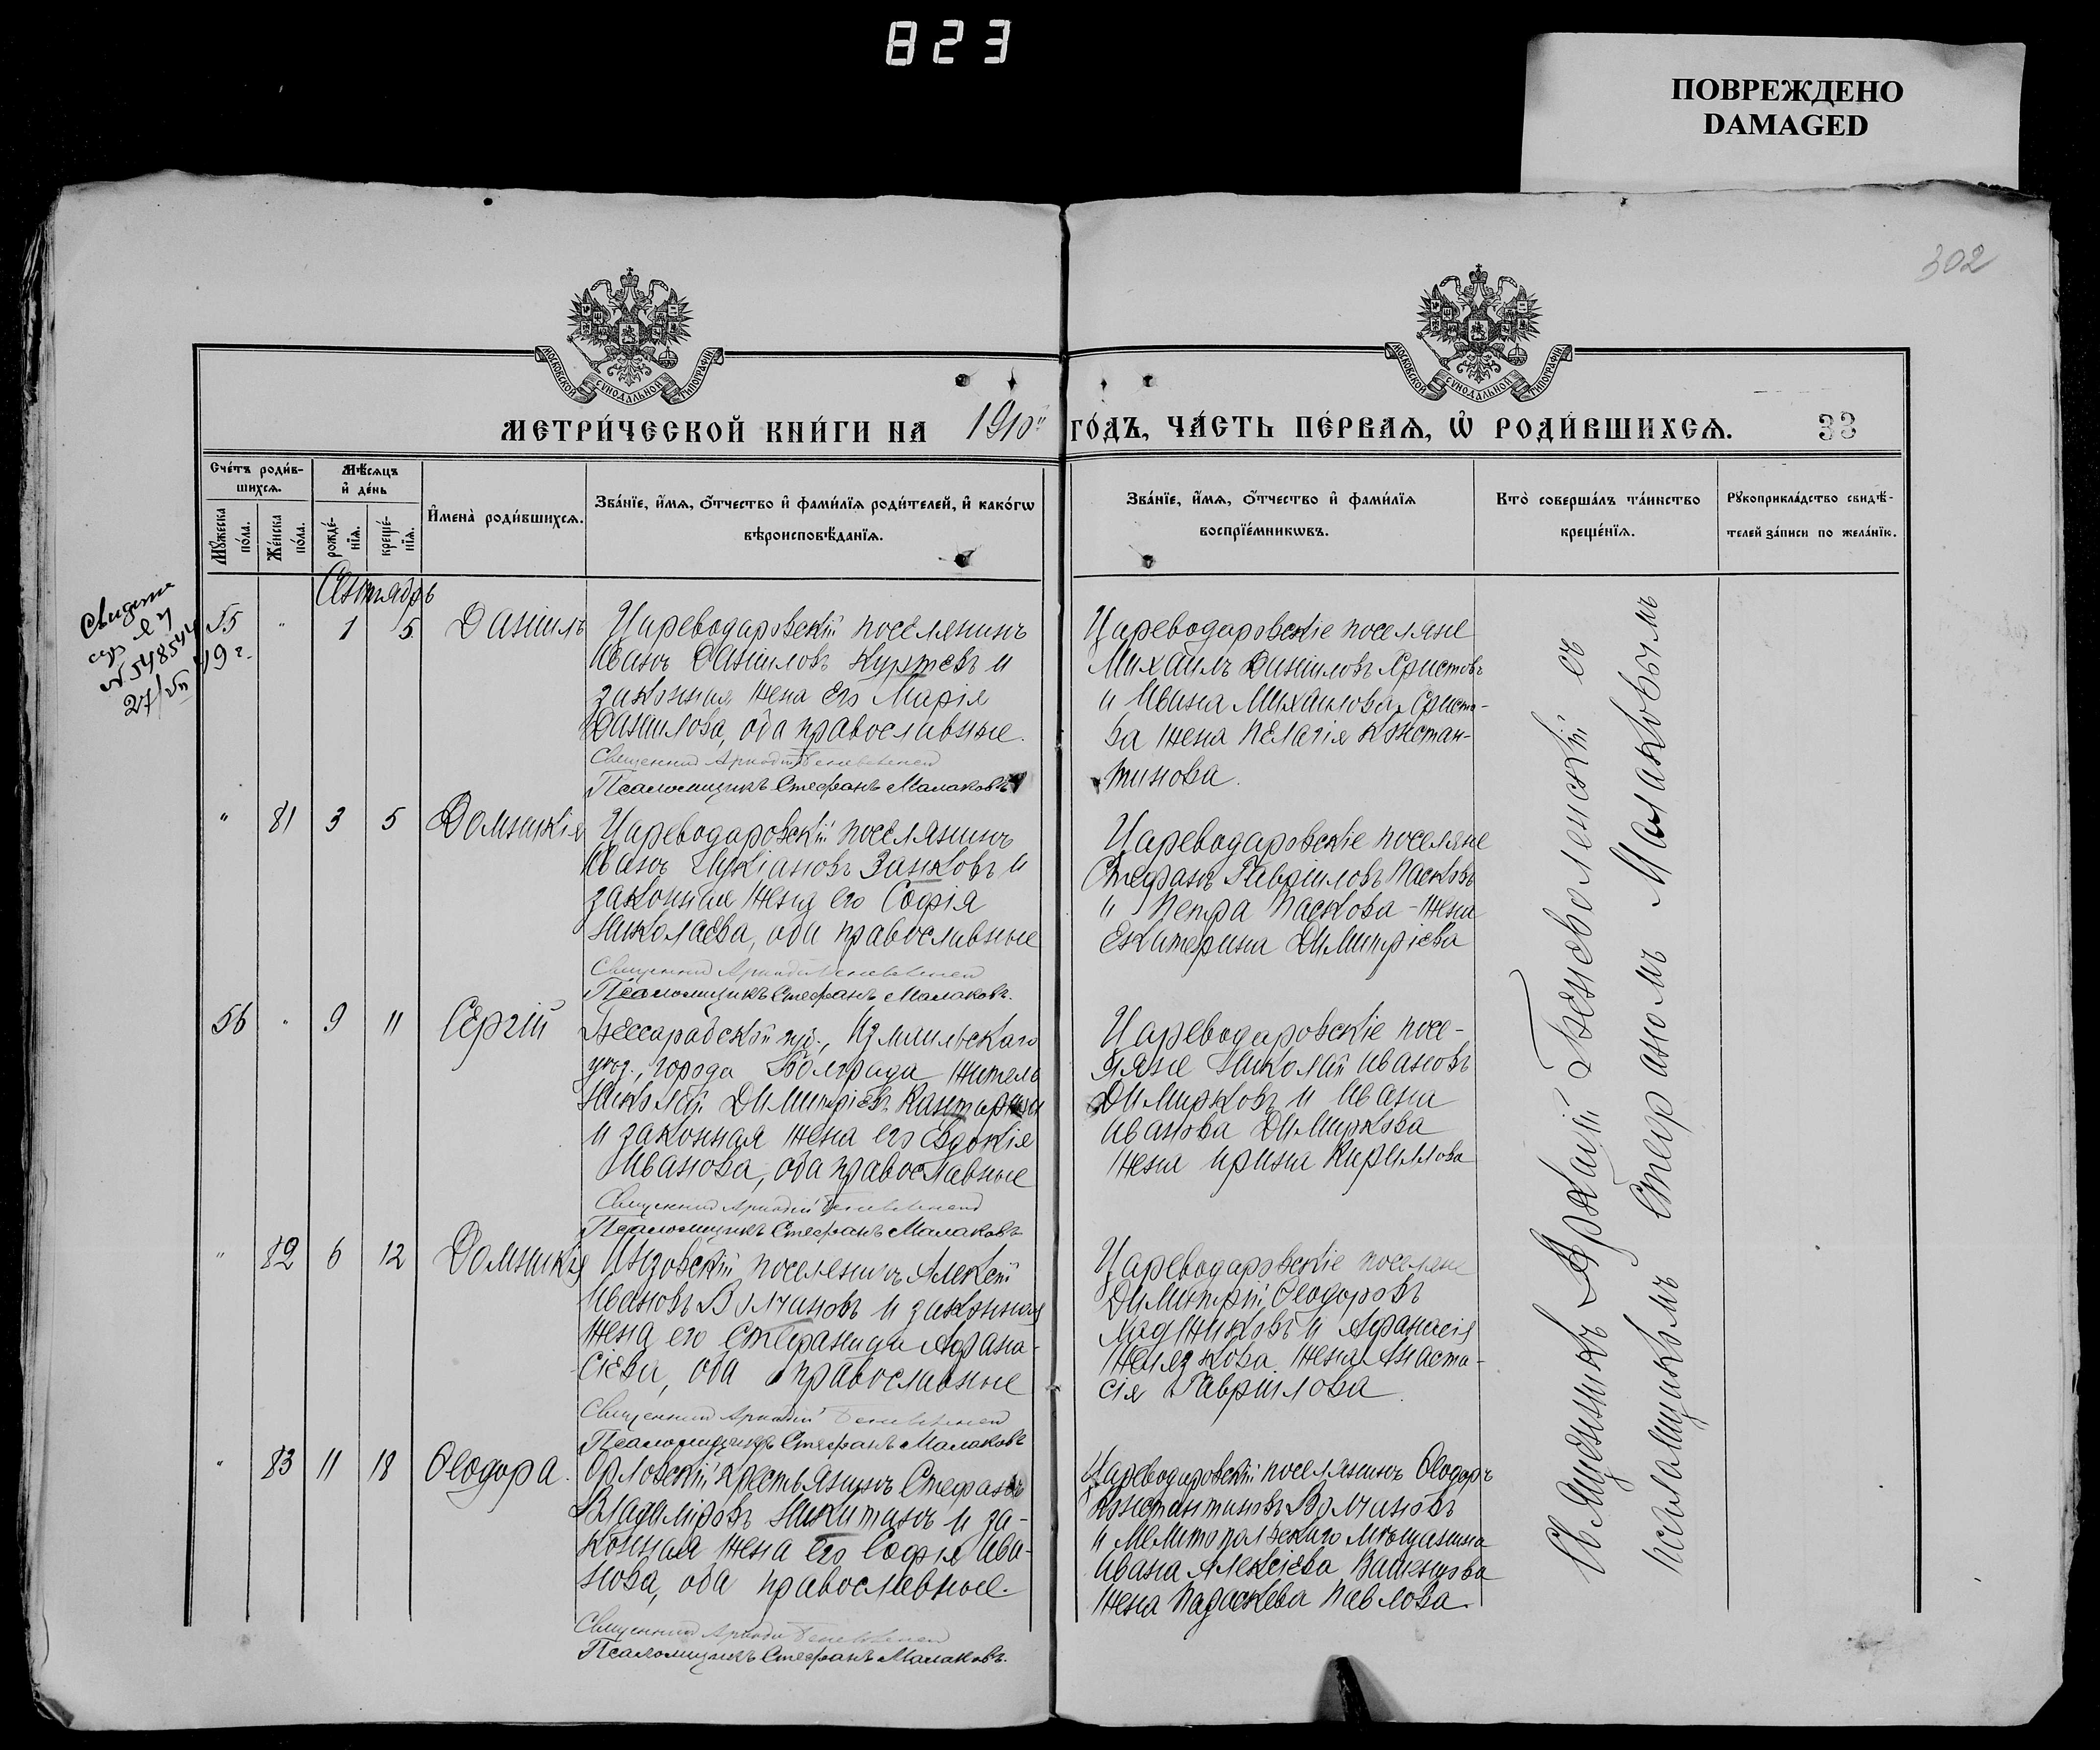 823
ПОВРЕЖДЕНО
DAMAGED
302
МОСКОВСКОЙ СУНОДАЛЬНОЙ ТИПОГРАФІИ
МОСКОВСКОЙ СУНОДАЛЬНОЙ ТИПОГРАФІИ
МЕТРИ́ЧЕСКОЙ КНИ́ГИ НА 1910 ГО́ДЪ, ЧА́СТЬ ПЕ́РВАѦ, Ѡ҆ РОДИ́ВШИХСѦ. 33
Сче́тъ роди́в-
шихсѧ.
Мꙋ́жеска по́ла.
Же́нска по́ла.
Мѣ́сѧцъ
и҆ де́нь
рожде́-
нїѧ.
креще́-
нїѧ.
И҆мена̀ роди́вшихсѧ.
Зва́нїе, и҆́мѧ, ѻ҆́тчество и҆ фами́лїѧ роди́телей, и҆ како́гѡ
вѣроисповѣ́данїѧ.
Зва́нїе, и҆́мѧ, ѻ҆́тчество и҆ фами́лїѧ
воспрїе́мникѡвъ.
Кто̀ соверша́лъ та́инство
креще́нїѧ.
Рꙋкоприкла́дство свидѣ́-
телей за́писи по жела́нїю.
Сентябрь
№ 548544
27/VII 49 г.
55 " 1 5 Даніилъ
Цареводаровскій поселянинъ
Иванъ Даніиловъ Куртевъ и
законная жена его Марія
Даниилова, оба православные.
Священник Аркадій Беневоленский
Псаломщикъ Стефанъ Малаковъ
Цареводаровскіе поселяне
Михаилъ Даніиловъ Христовъ
и Ивана Михаилова Христо-
ва жена Пелагія Констан-
тинова.
" 81 3 5 Домникія
Цареводаровскій поселянинъ
Иванъ Лукіановъ Занковъ и
законная жена его Софія
Николаева, оба православные
Священник Аркадій Беневоленский
Псаломщикъ Стефанъ Малаковъ.
Цареводаровскіе поселяне
Стефанъ Гавріиловъ Пасковъ
и Петра Паскова - жена
Екатерина Димитріева
56 " 9 11 Сергій
Бессарабской губ., Измаильскаго
уѣз., города Болграда житель
Николай Димитріевъ
и законная жена его Евдокія
Иванова, оба православные
Священник Аркадій Беневоленский
Псаломщикъ Стефанъ Малаковъ
Цареводаровскіе посе-
ляне Николай Ивановъ
Димирковъ и Ивана
Иванова Димиркова
жена Ирина Кириллова
" 82 6 12 Домникія
Инзовскій поселянинъ Алексѣй
Ивановъ Волчановъ и законная
жена его Стефанида Афана-
сіева, оба православные
Священник Аркадій Беневоленский
Псаломщикъ Стефанъ Малаковъ
Цареводаровскіе поселяне
Димитрій Ѳеодоровъ
и Афанасія
Желязкова жена Анаста-
сія Гавріилова.
" 83 11 18 Ѳеодора.
Орловскій крестьянинъ Стефанъ
Владиміровъ Никитинъ и за-
конная жена его Софія Ива-
нова, оба православные.
Священник Аркадій Беневоленский
Псаломщикъ Стефанъ Малаковъ.
Цареводаровскій поселянинъ Ѳеодоръ
Константиновъ Волчановъ
и Мелитопольскаго мѣщанина
Ивана Алексіева
жена Параскева Павлова.
Священникъ Аркадій Беневоленскій съ
псаломщикомъ Стефаномъ Малаковымъ